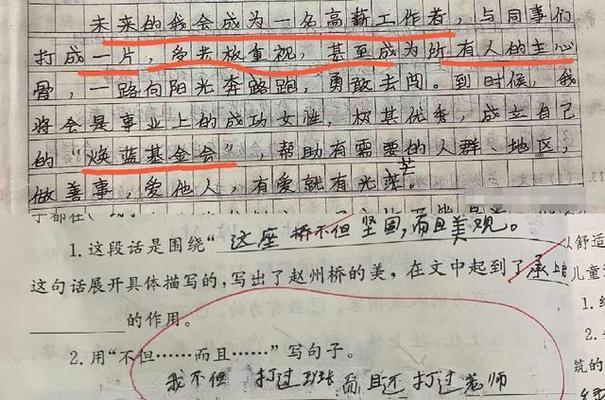 未来的我会成为一名高薪工作者，与同事们
打成一片，受老板重视，甚至成为所有人的主心
骨，一路向阳光奔路跑，勇敢去闯。到时候，我
将会是事业上的成功女性，极其优秀，成立自己
的“焕蓝基金会”，帮助有需要的人群、地区，
做善事，爱他人，有爱就有光芒。
芒
1.这段话是围绕“这座桥不但坚固，而且美观。
这句话展开具体描写的，写出了赵州桥的美，在文中起到了承上
的作用。
2.用“不但……而且……”写句子。
我不但打过班长而且还打过老师
以舒适
儿童
1.
筑的
2.